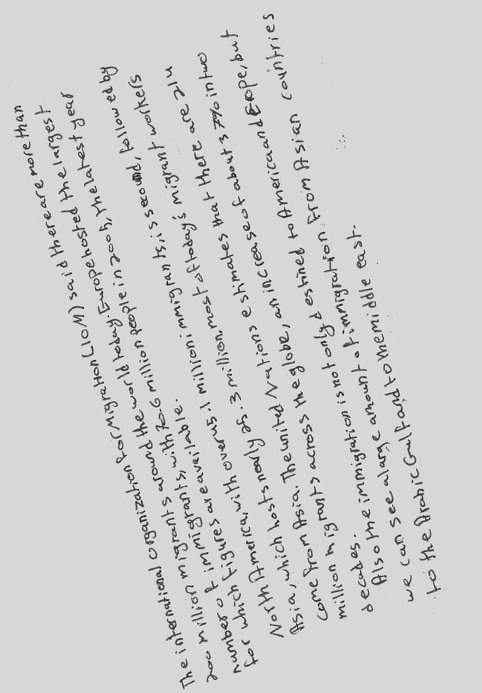 The international organization for Migration (IOM) said there are more than
200 million migrants around the world today. Europe hosted the largest
number of immigrants, with 70.6 million people in 2005, the latest year
for which figures are available.
North America, with over 45.1 million immigrants, is second, followed by
Asia, which hosts nearly 25.3 million. most of today's migrant workers
come from Asia. The united Nations estimates that there are 214
million migrants across the globe, an increase of about 37% in two
decades.
Also the immigration is not only destined to America and Europe, but
we can see a large amount of immigration from Asian countries
to the Arabic Gulf and to the middle east.